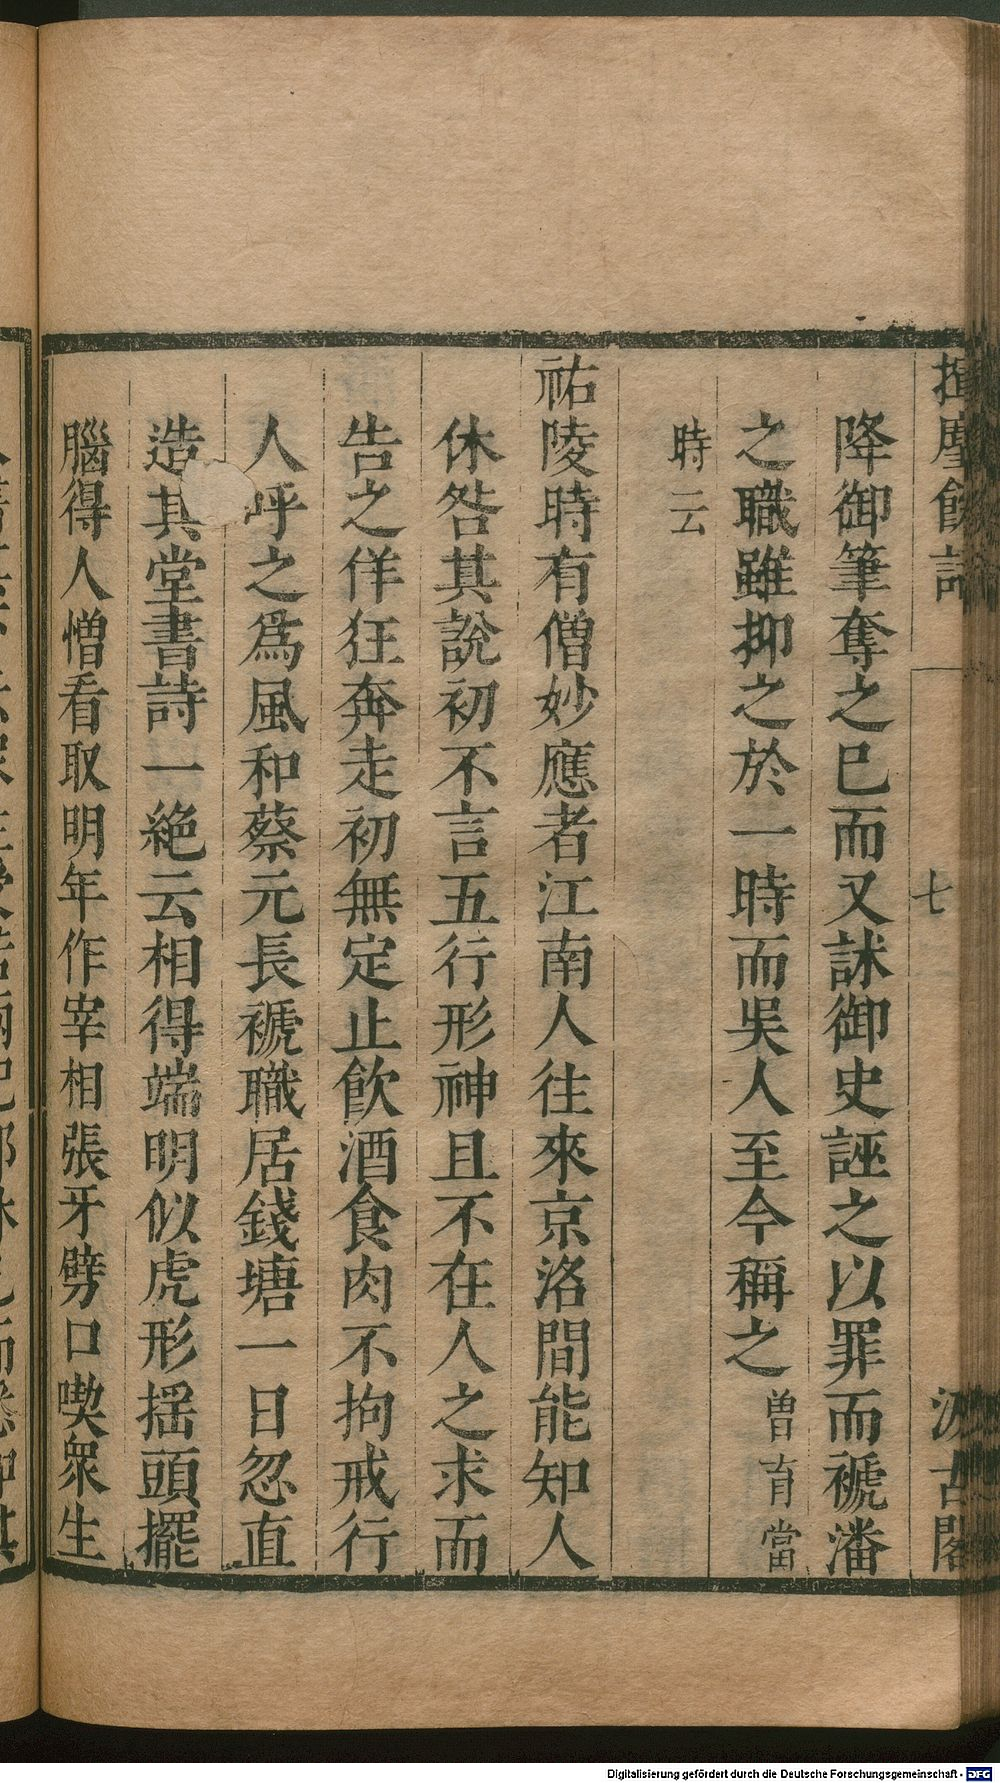 揮麈餘話
七
汲古閣
降御筆奪之已而又訹御史誣之以罪而褫潘
之職雖抑之於一時而吳人至今稱之曽育當
時云
祐陵時有僧妙應者江南人往來京洛間能知人
休咎其說初不言五行形神且不在人之求而
告之佯狂奔走初無定止飲酒食肉不拘戒行
人呼之爲風和蔡元長褫職居錢塘一日忽直
造其堂書詩一絶云相得端明似虎形揺頭擺
腦得人憎看取明年作宰相張牙劈口喫衆生
Digitalisierung gefördert durch die Deutsche Forschungsgemeinschaft - DFG